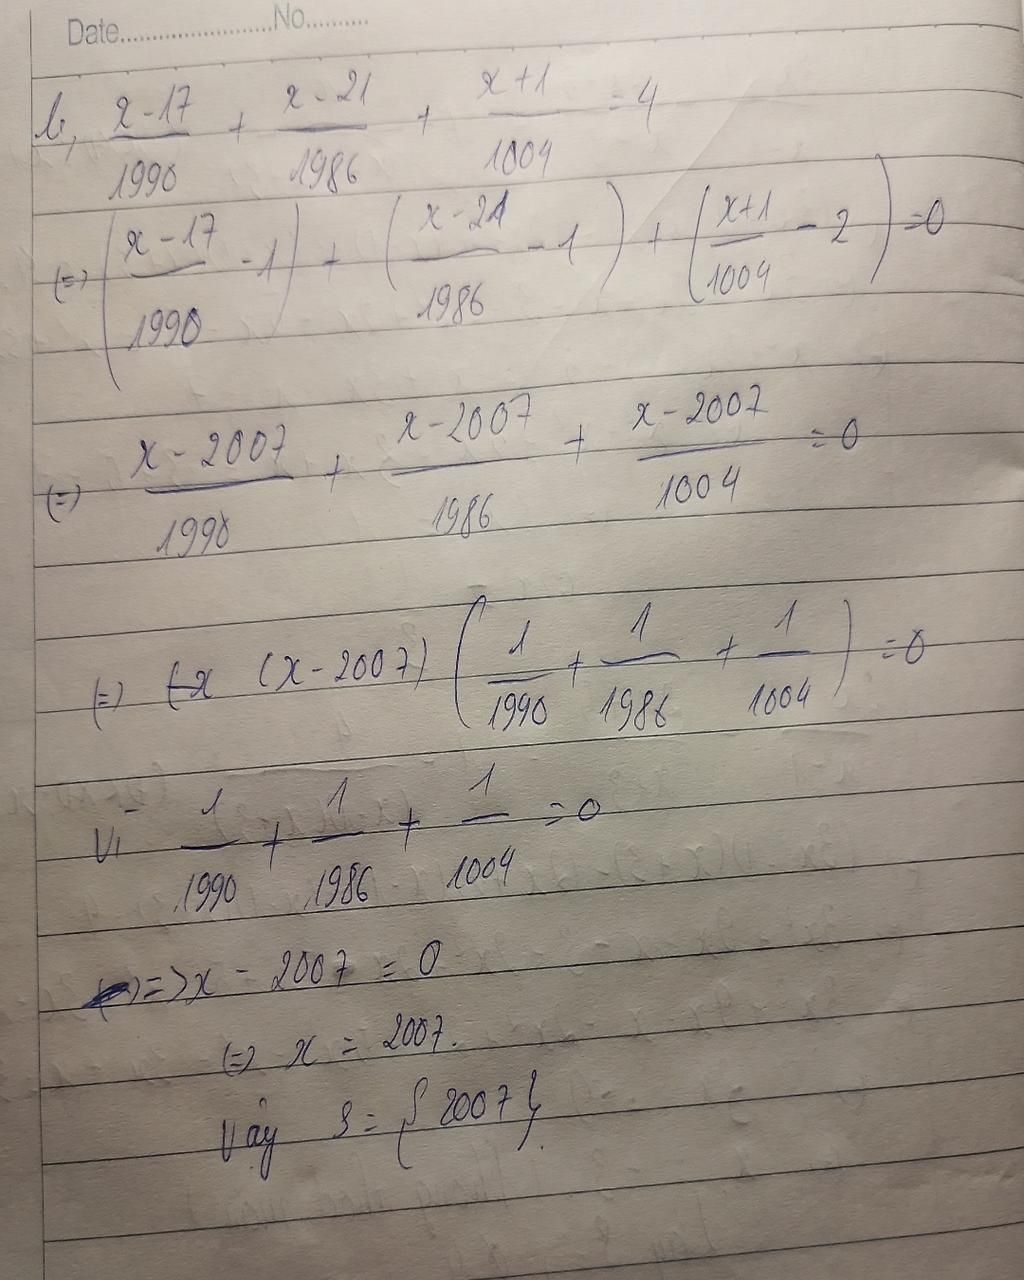 Date........................No..........
b, x-17/1990 + x-21/1986 + x+1/1004 = 4
(=) (x-17/1990 - 1) + (x-21/1986 - 1) + (x+1/1004 - 2) = 0
(=) x-2007/1990 + x-2007/1986 + x-2007/1004 = 0
(=) (x-2007) (1/1990 + 1/1986 + 1/1004) = 0
Vì 1/1990 + 1/1986 + 1/1004 = 0
=> x - 2007 = 0
(=) x = 2007.
Vậy S = {2007}.